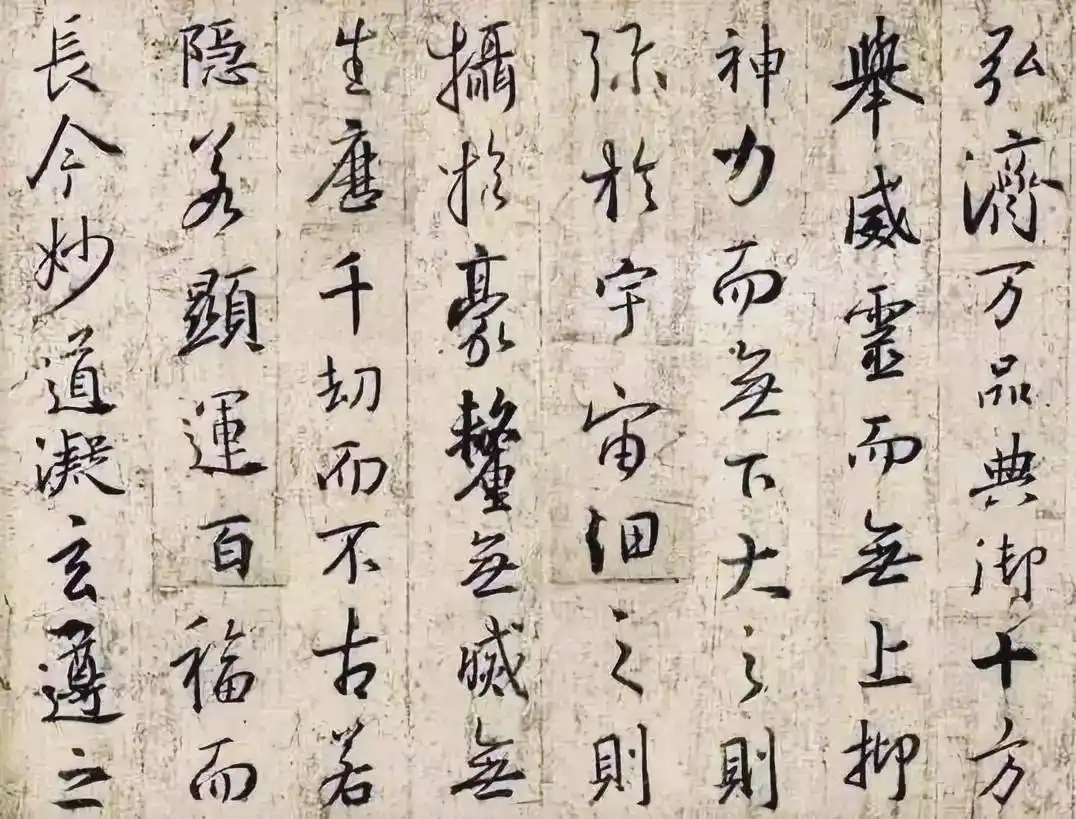 弘濟万品典御十方
舉威靈而無上抑
神力而無下大之則
弥於宇宙細之則
攝於豪釐無滅無
生歷千劫而不古若
隱若顯運百福而
長今妙道凝玄遵之